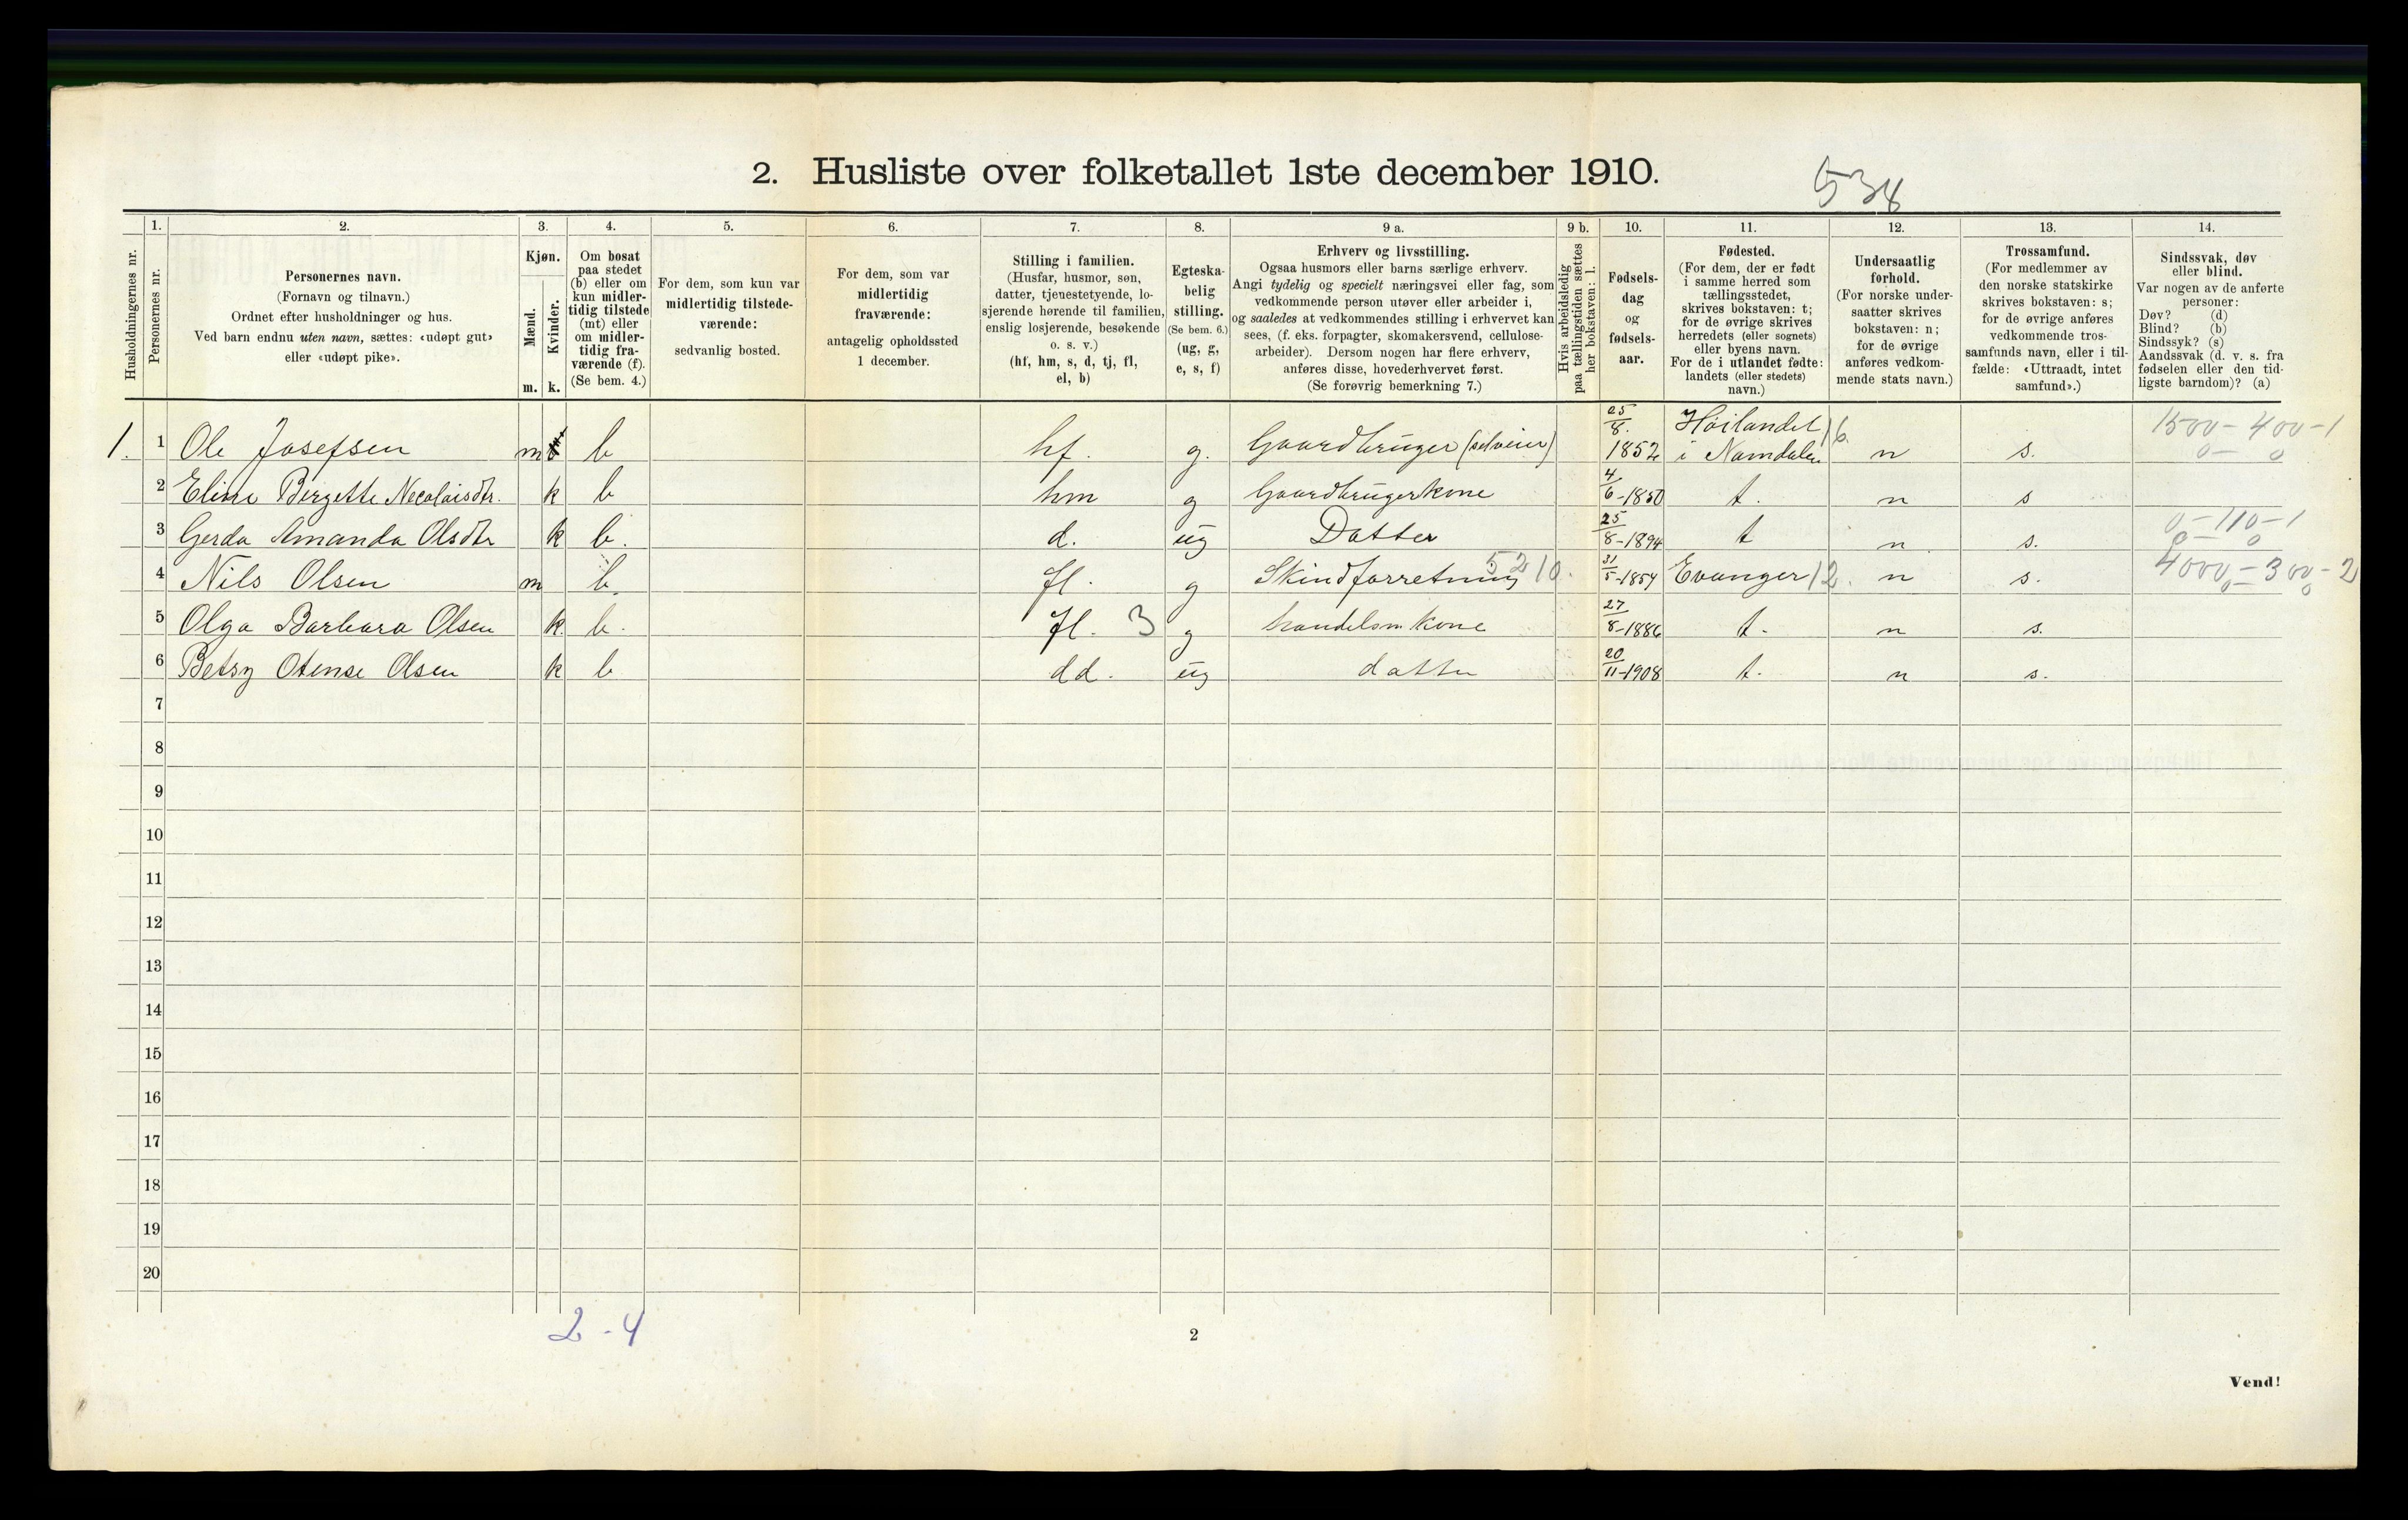 2. Husliste over folketallet 1ste december 1910.
538
Husholdningernes nr.
1.
Personernes nr.
2.
Personernes navn.
(Fornavn og tilnavn.)
Ordnet efter husholdninger og hus.
Ved barn endnu uten navn, sættes: «udøpt gut»
eller «udøpt pike».
3.
Kjøn.
Mænd.
Kvinder.
m. k.
4.
Om bosat
paa stedet
(b) eller om
kun midler-
tidig tilstede
(mt) eller
om midler-
tidig fra-
værende (f).
(Se bem. 4.)
5.
For dem, som kun var
midlertidig tilstede-
værende:
sedvanlig bosted.
6.
For dem, som var
midlertidig
fraværende:
antagelig opholdssted
1 december.
7.
Stilling i familien.
(Husfar, husmor, søn,
datter, tjenestetyende, lo-
sjerende hørende til familien,
enslig losjerende, besøkende
o. s. v.)
(hf, hm, s, d, tj, fl,
el, b)
8.
Egteska-
belig
stilling.
(Se bem. 6.)
(ug, g,
e, s, f)
9 a.
Erhverv og livsstilling.
Ogsaa husmors eller barns særlige erhverv.
Angi tydelig og specielt næringsvei eller fag, som
vedkommende person utøver eller arbeider i,
og saaledes at vedkommendes stilling i erhvervet kan
sees, (f. eks. forpagter, skomakersvend, cellulose-
arbeider). Dersom nogen har flere erhverv,
anføres disse, hovederhvervet først.
(Se forøvrig bemerkning 7.)
9 b.
Hvis arbeidsledig
paa tællingstiden sættes
her bokstaven: l.
10.
Fødsels-
dag
og
fødsels-
aar.
11.
Fødested.
(For dem, der er født
i samme herred som
tællingsstedet,
skrives bokstaven: t;
for de øvrige skrives
herredets (eller sognets)
eller byens navn.
For de i utlandet fødte:
landets (eller stedets)
navn.)
12.
Undersaatlig
forhold.
(For norske under-
saatter skrives
bokstaven: n;
for de øvrige
anføres vedkom-
mende stats navn.)
13.
Trossamfund.
(For medlemmer av
den norske statskirke
skrives bokstaven: s;
for de øvrige anføres
vedkommende tros-
samfunds navn, eller i til-
fælde: «Uttraadt, intet
samfund».)
14.
Sindssvak, døv
eller blind.
Var nogen av de anførte
personer:
Døv? (d)
Blind? (b)
Sindssyk? (s)
Aandssvak (d. v. s. fra
fødselen eller den tid-
ligste barndom)? (a)
1. 1 Ole Josefsen m b hf. g. Gaardbruger (selveier) 25/8. 1852 Høilandet i Namdalen 16 n s. 1500 - 400 - 1 0 - 0
2 Eline Bergette Necolaisdtr. k b hm g Gaardbrugerkone 4/6-1850 t. n s
3 Gerda Amanda Olsdtr k b. d. ug Datter 25/8-1894 t n s. 0 - 110 - 1 0 - 0
4 Nils Olsen m b. fl. g Skindforretning 5210. 31/5-1854 Evanger 12. n s. 4000 - 300 - 2 0 - 0
5 Olga Barbara Olsen k. b. fl. 3 g handelsm. kone 27/8-1886 t. n s.
6 Betsy Otense Olsen k b dd. ug datter 20/11-1908 t. n s.
7
8
9
10
11
12
13
14
15
16
17
18
19
20
2 - 4
2
Vend!